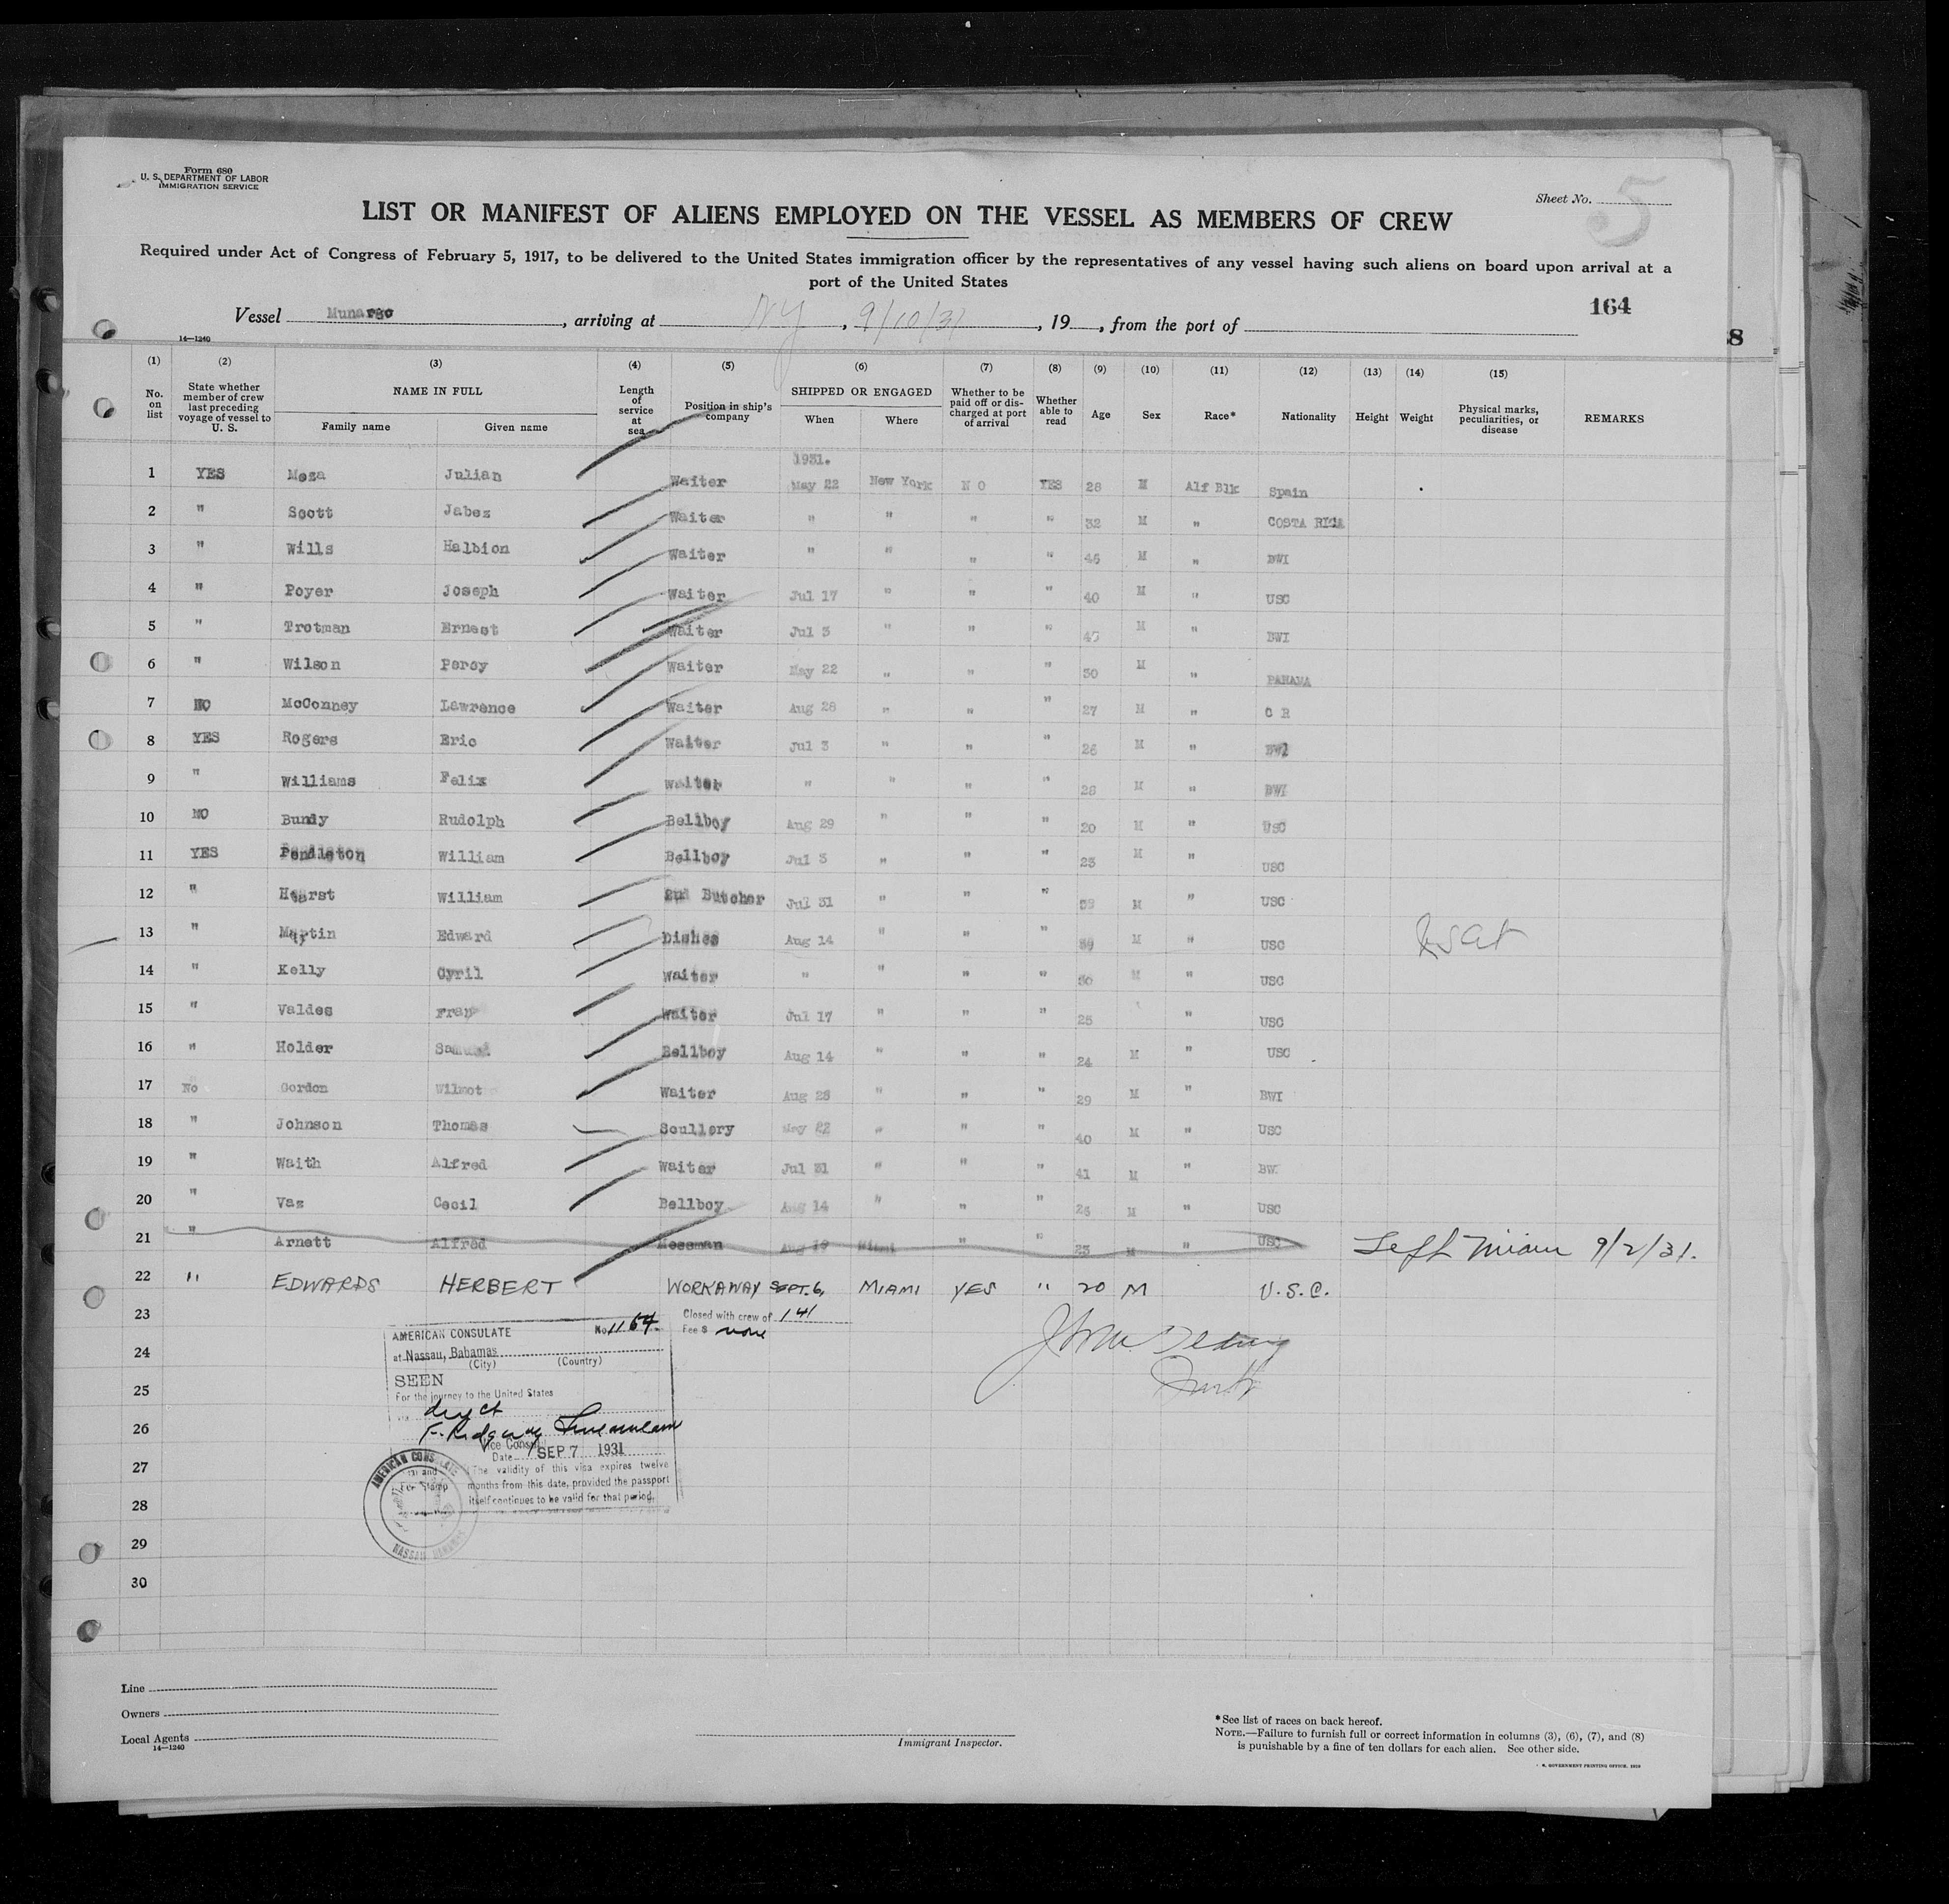 Form 680
U. S. DEPARTMENT OF LABOR
IMMIGRATION SERVICE
Sheet No. 5
LIST OR MANIFEST OF ALIENS EMPLOYED ON THE VESSEL AS MEMBERS OF CREW
Required under Act of Congress of February 5, 1917, to be delivered to the United States immigration officer by the representatives of any vessel having such aliens on board upon arrival at a
port of the United States
164
Vessel Munargo, arriving at NY, 9/10/31, 19, from the port of
14—1240
8
(1) (2) (3) (4) (5) (6) (7) (8) (9) (10) (11) (12) (13) (14) (15)
No. on list State whether member of crew last preceding voyage of vessel to U. S. NAME IN FULL Family name Given name Length of service at sea Position in ship's company SHIPPED OR ENGAGED When Where Whether to be paid off or discharged at port of arrival Whether able to read Age Sex Race* Nationality Height Weight Physical marks, peculiarities, or disease REMARKS
1931.
1 YES Meza Julian Waiter May 22 New York NO YES 28 M Afr Blk Spain
2 " Scott Jabez Waiter " " " " 32 M " COSTA RICA
3 " Wills Halbion Waiter " " " " 45 M " BWI
4 " Poyer Joseph Waiter Jul 17 " " " 40 M " USC
5 " Trotman Ernest Waiter Jul 3 " " " 45 M " BWI
6 " Wilson Percy Waiter May 22 " " " 30 M " PANAMA
7 NO McConney Lawrence Waiter Aug 28 " " " 27 M " C R
8 YES Rogers Eric Waiter Jul 3 " " " 26 M " BWI
9 " Williams Felix Waiter " " " " 28 M " BWI
10 NO Bundy Rudolph Bellboy Aug 29 " " " 20 M " USC
11 YES Pendleton William Bellboy Jul 3 " " " 23 M " USC
12 " Hearst William 2nd Butcher Jul 31 " " " M " USC
13 " Martin Edward Dishes Aug 14 " " " M " USC
14 " Kelly Cyril Waiter " " " " 30 M " USC
15 " Valdes Fran Waiter Jul 17 " " " 25 " USC
16 " Holder Samuel Bellboy Aug 14 " " " 24 M " USC
17 No Gordon Wilmot Waiter Aug 28 " " " 29 M " BWI
18 " Johnson Thomas Scullery May 22 " " " 40 M " USC
19 " Waith Alfred Waiter Jul 31 " " " 41 M " BW
20 " Vaz Cecil Bellboy Aug 14 " " " 25 M " USC
21 " Arnett Alfred Messman Aug 19 Miami " " 23 M " USC Left Miami 9/2/31.
22 " EDWARDS HERBERT WORKAWAY SEPT. 6, MIAMI YES " 20 M U.S.C.
23
24
25
26
27
28
29
30
AMERICAN CONSULATE No. 1164
at Nassau, Bahamas
(City) (Country)
SEEN
For the journey to the United States
direct
Vice Consul
Date SEP 7 1931
The validity of this visa expires twelve
months from this date, provided the passport
itself continues to be valid for that period.
Closed with crew of 141
Fee $ none
AMERICAN CONSULATE
Fee Stamp
NASSAU BAHAMAS
Line
Owners
Local Agents
14—1240
Immigrant Inspector.
*See list of races on back hereof.
NOTE.—Failure to furnish full or correct information in columns (3), (6), (7), and (8)
is punishable by a fine of ten dollars for each alien. See other side.
GOVERNMENT PRINTING OFFICE